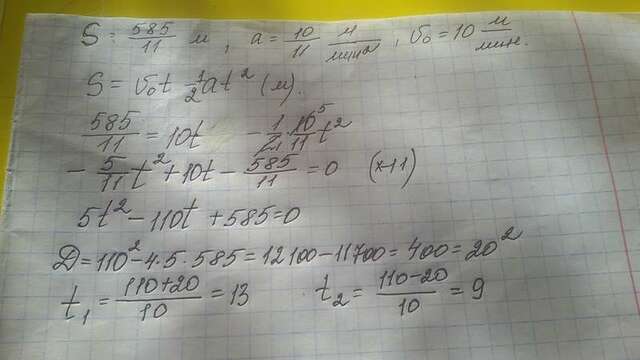 S = 585/11 м, a = 10/11 м/мин², v₀ = 10 м/мин.
S = v₀t - 1/2 at² (м).
585/11 = 10t - 1/2 10/11 5 t²
- 5/11 t² + 10t - 585/11 = 0 (×11)
5t² - 110t + 585 = 0
D = 110² - 4·5·585 = 12100 - 11700 = 400 = 20²
t₁ = 110+20/10 = 13 t₂ = 110-20/10 = 9